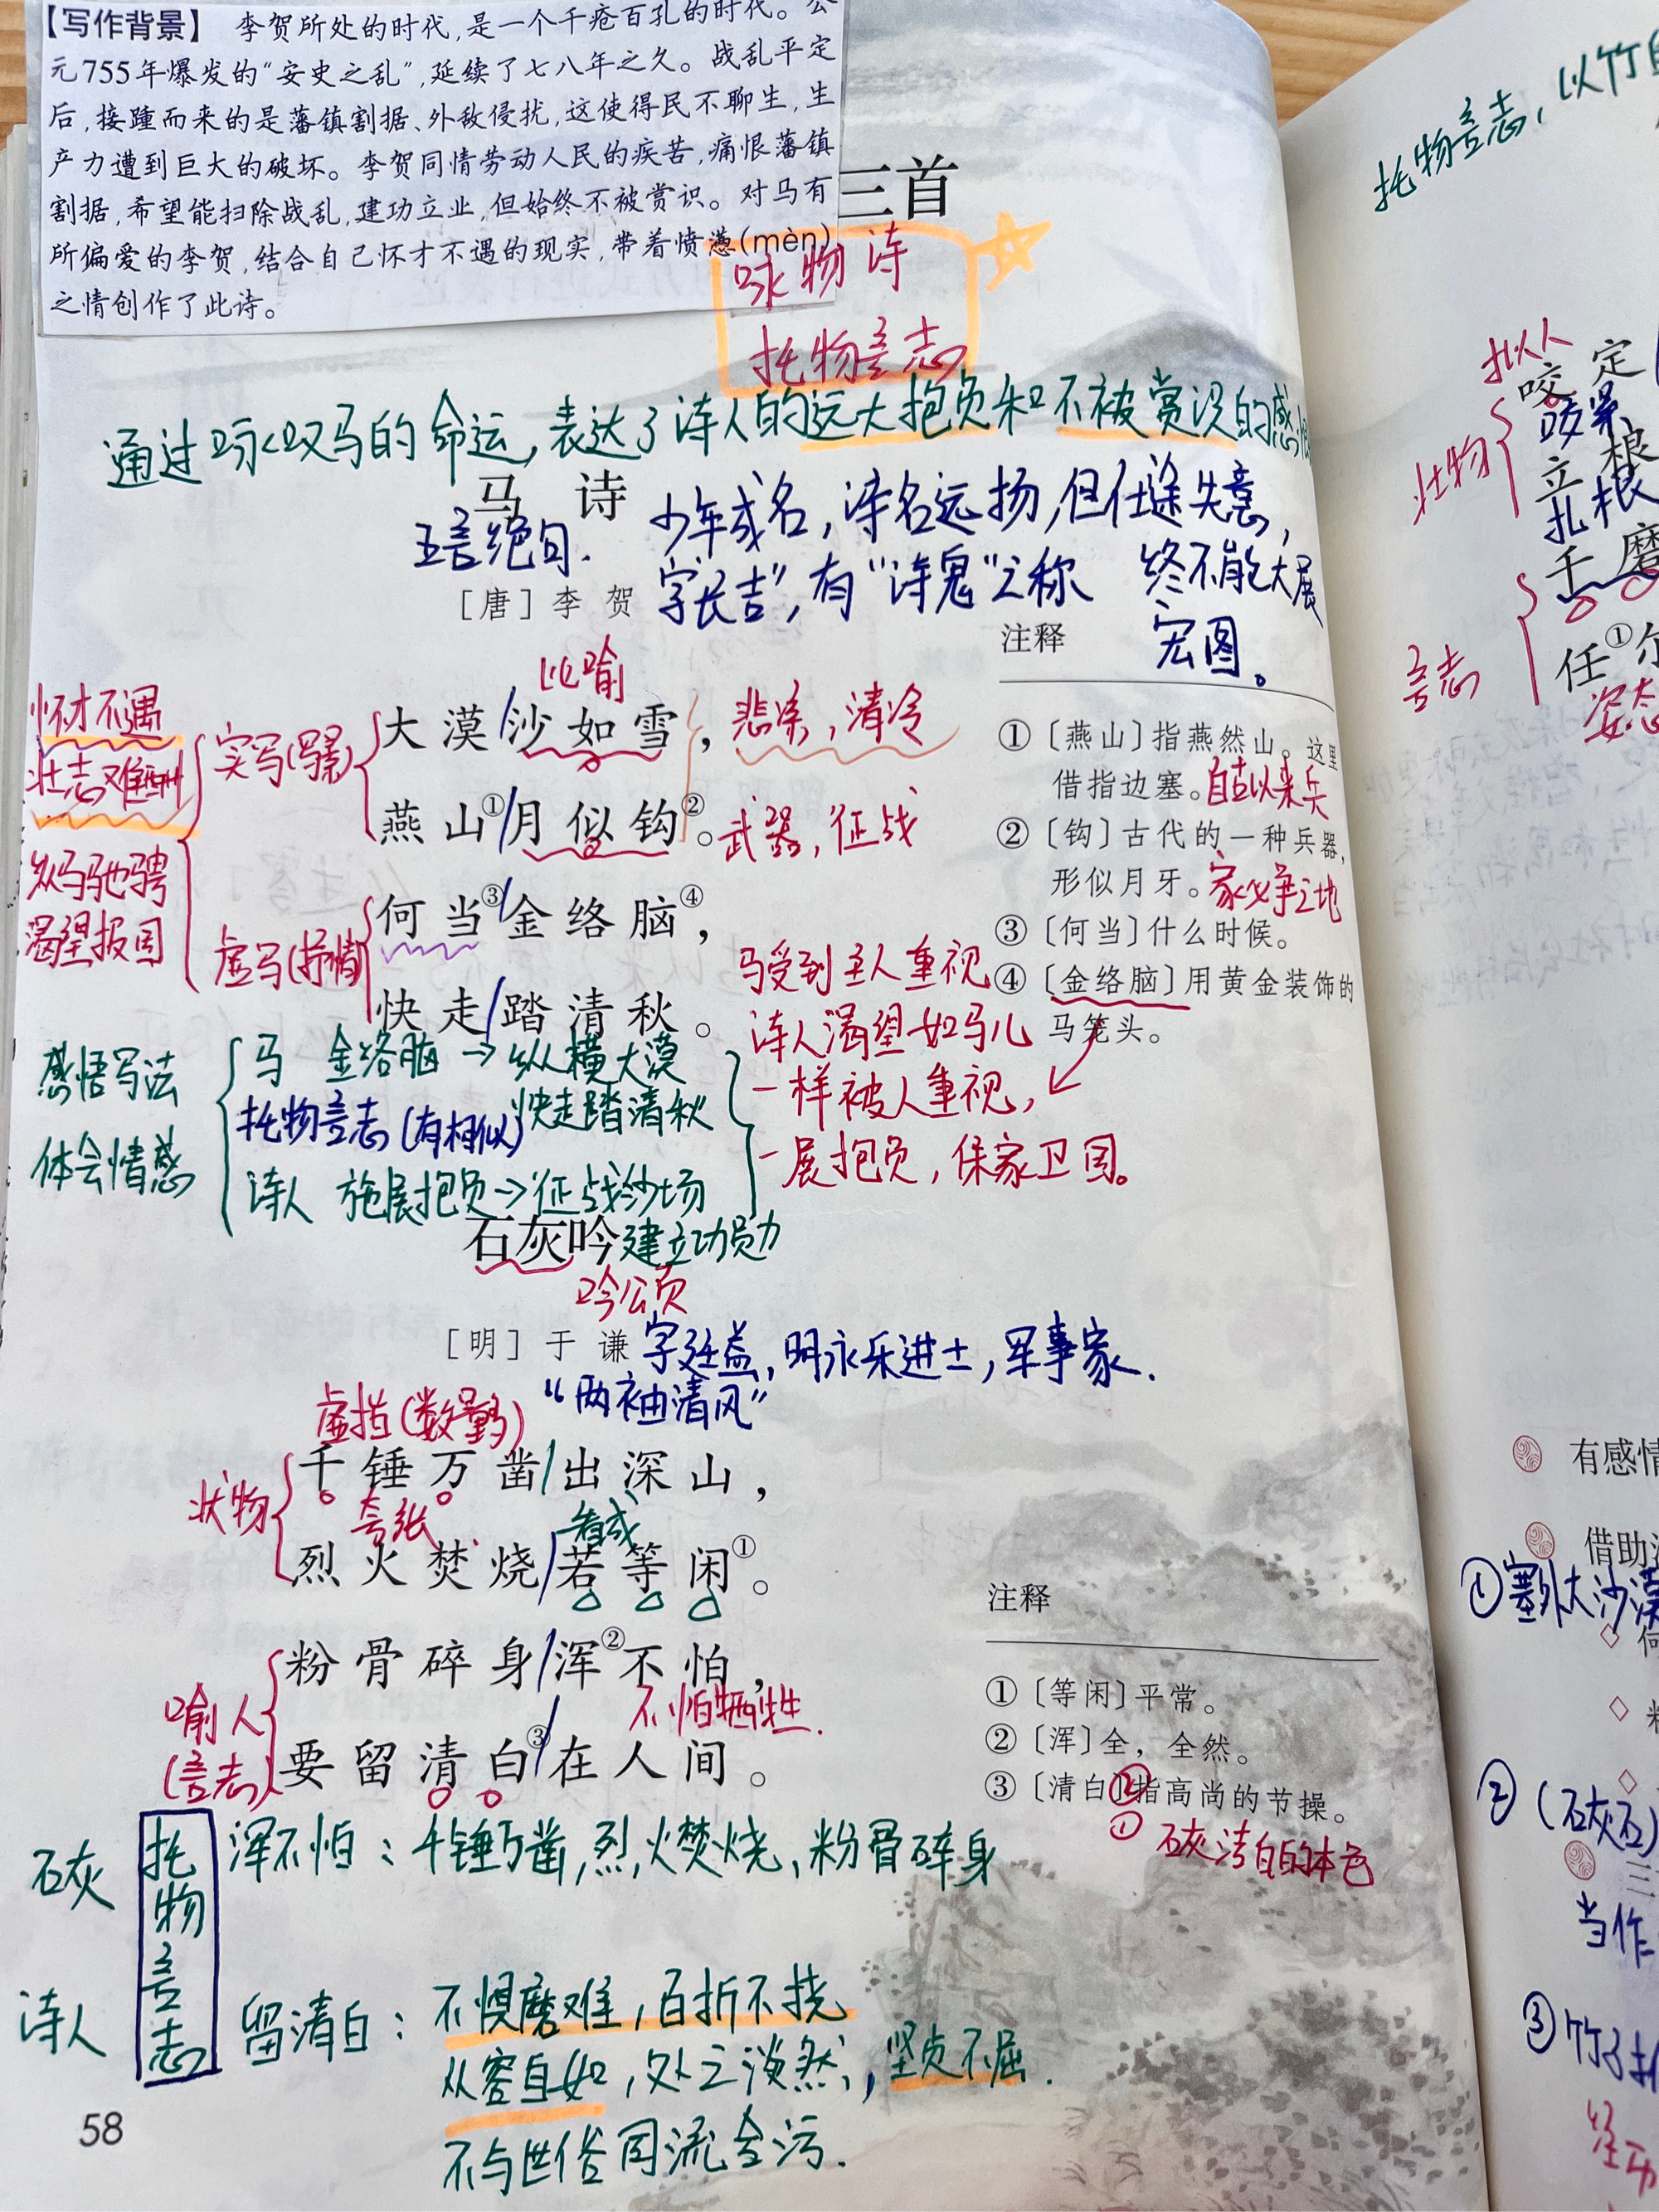 【写作背景】 李贺所处的时代,是一个千疮百孔的时代。公
元755年爆发的“安史之乱”,延续了七八年之久。战乱平定
后,接踵而来的是藩镇割据、外敌侵扰,这使得民不聊生,生
产力遭到巨大的破坏。李贺同情劳动人民的疾苦,痛恨藩镇
割据,希望能扫除战乱,建功立业,但始终不被赏识。对马有
所偏爱的李贺,结合自己怀才不遇的现实,带着愤懑(mèn)
之情创作了此诗。
三首
咏物诗
托物言志
通过咏叹马的命运,表达了诗人的远大抱负和不被赏识的感
马 诗
五言绝句.
少年成名,诗名远扬,但仕途失意,
终不能大展
宏图。
[唐] 李 贺
字长吉,有“诗鬼”之称
比喻
怀才不遇
壮志难酬
纵马驰骋
渴望报国
实写(景)
大漠/沙如雪,
悲凉,清冷
燕山①/月似钩②。
武器,征战
虚写(抒情)
何当③/金络脑④,
快走/踏清秋。
注释
①〔燕山〕指燕然山。这里
借指边塞。自古以来兵
②〔钩〕古代的一种兵器,
形似月牙。家必争之地
③〔何当〕什么时候。
④〔金络脑〕用黄金装饰的
马笼头。
马受到主人重视
诗人渴望如马儿
一样被人重视,
一展抱负,保家卫国。
感悟写法
体会情感
马 金络脑→纵横大漠
快走踏清秋
托物言志(有相似)
诗人 施展抱负→征战沙场
建立功勋
石灰吟
吟颂
[明] 于 谦
字廷益,明永乐进士,军事家.
“两袖清风”
虚指(数量多)
状物
千锤万凿/出深山,
夸张
看成
烈火焚烧/若等闲①。
粉骨碎身/浑②不怕,
不怕牺牲.
喻人
(言志)
要留清白③/在人间。
注释
①〔等闲〕平常。
②〔浑〕全,全然。
③〔清白〕②指高尚的节操。
① 石灰洁白的本色
石灰
托物言志
浑不怕:千锤万凿,烈火焚烧、粉骨碎身
诗人
留清白:不惧磨难,百折不挠
从容自如,处之淡然,坚贞不屈.
不与世俗同流合污.
58
托物言志,以竹
拟人
咬定
咬紧
状物
立根
扎根
千磨
任①
言志
姿态
有感情
借助
①塞外大沙漠
②(石灰石)
当作
③竹子